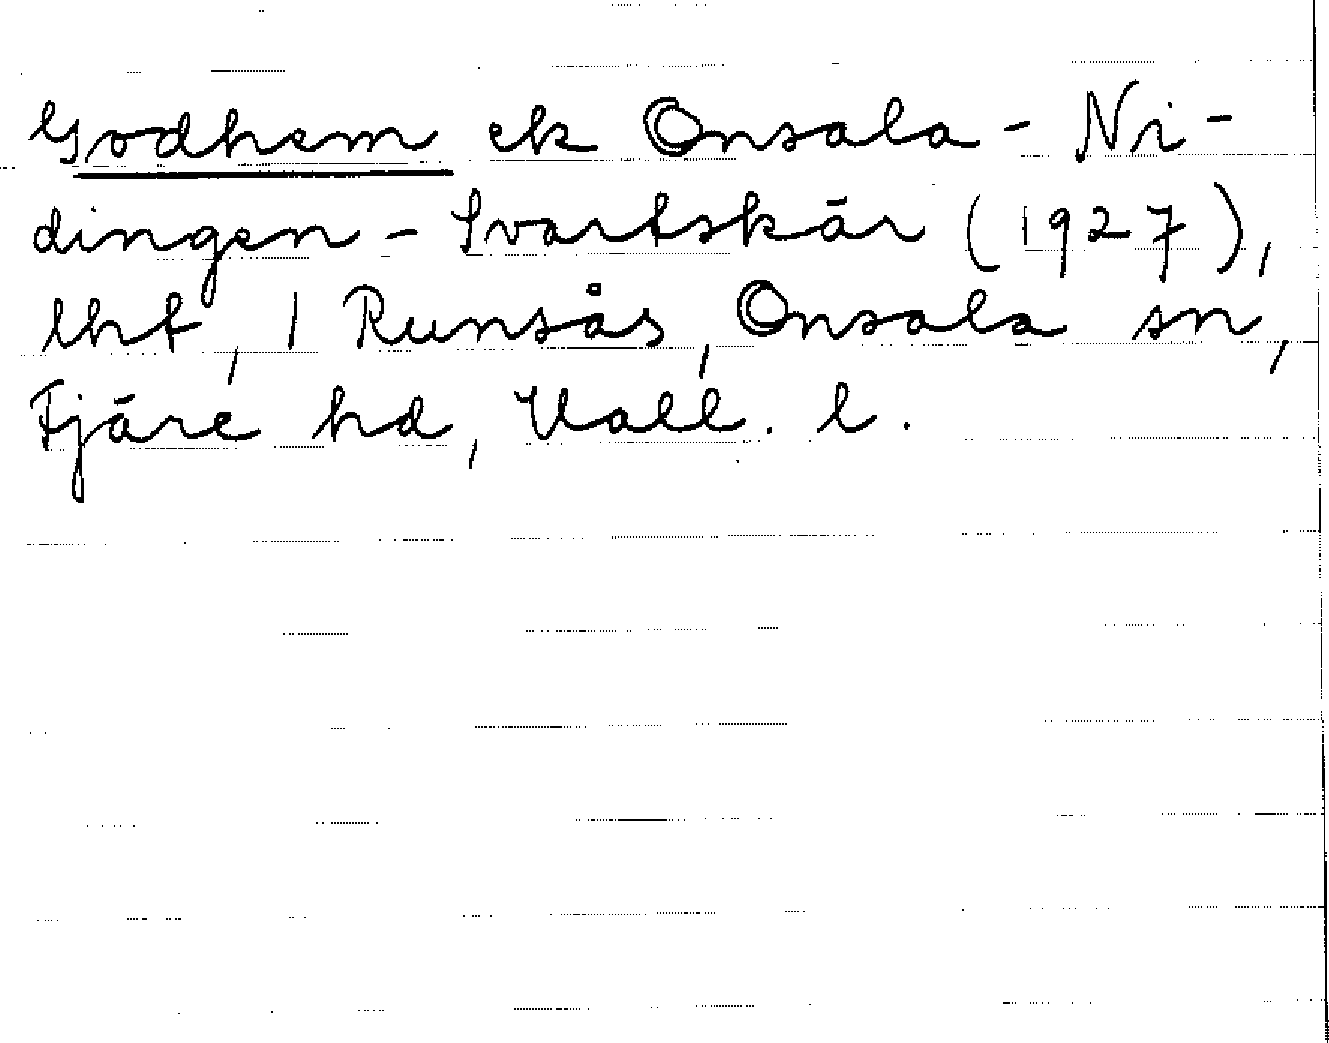 Godhem ek Onsala - Ni-
dingen - Svartskär (1927),
lht, 1 Runsås, Onsala sn,
Fjäre hd, Hall. l.